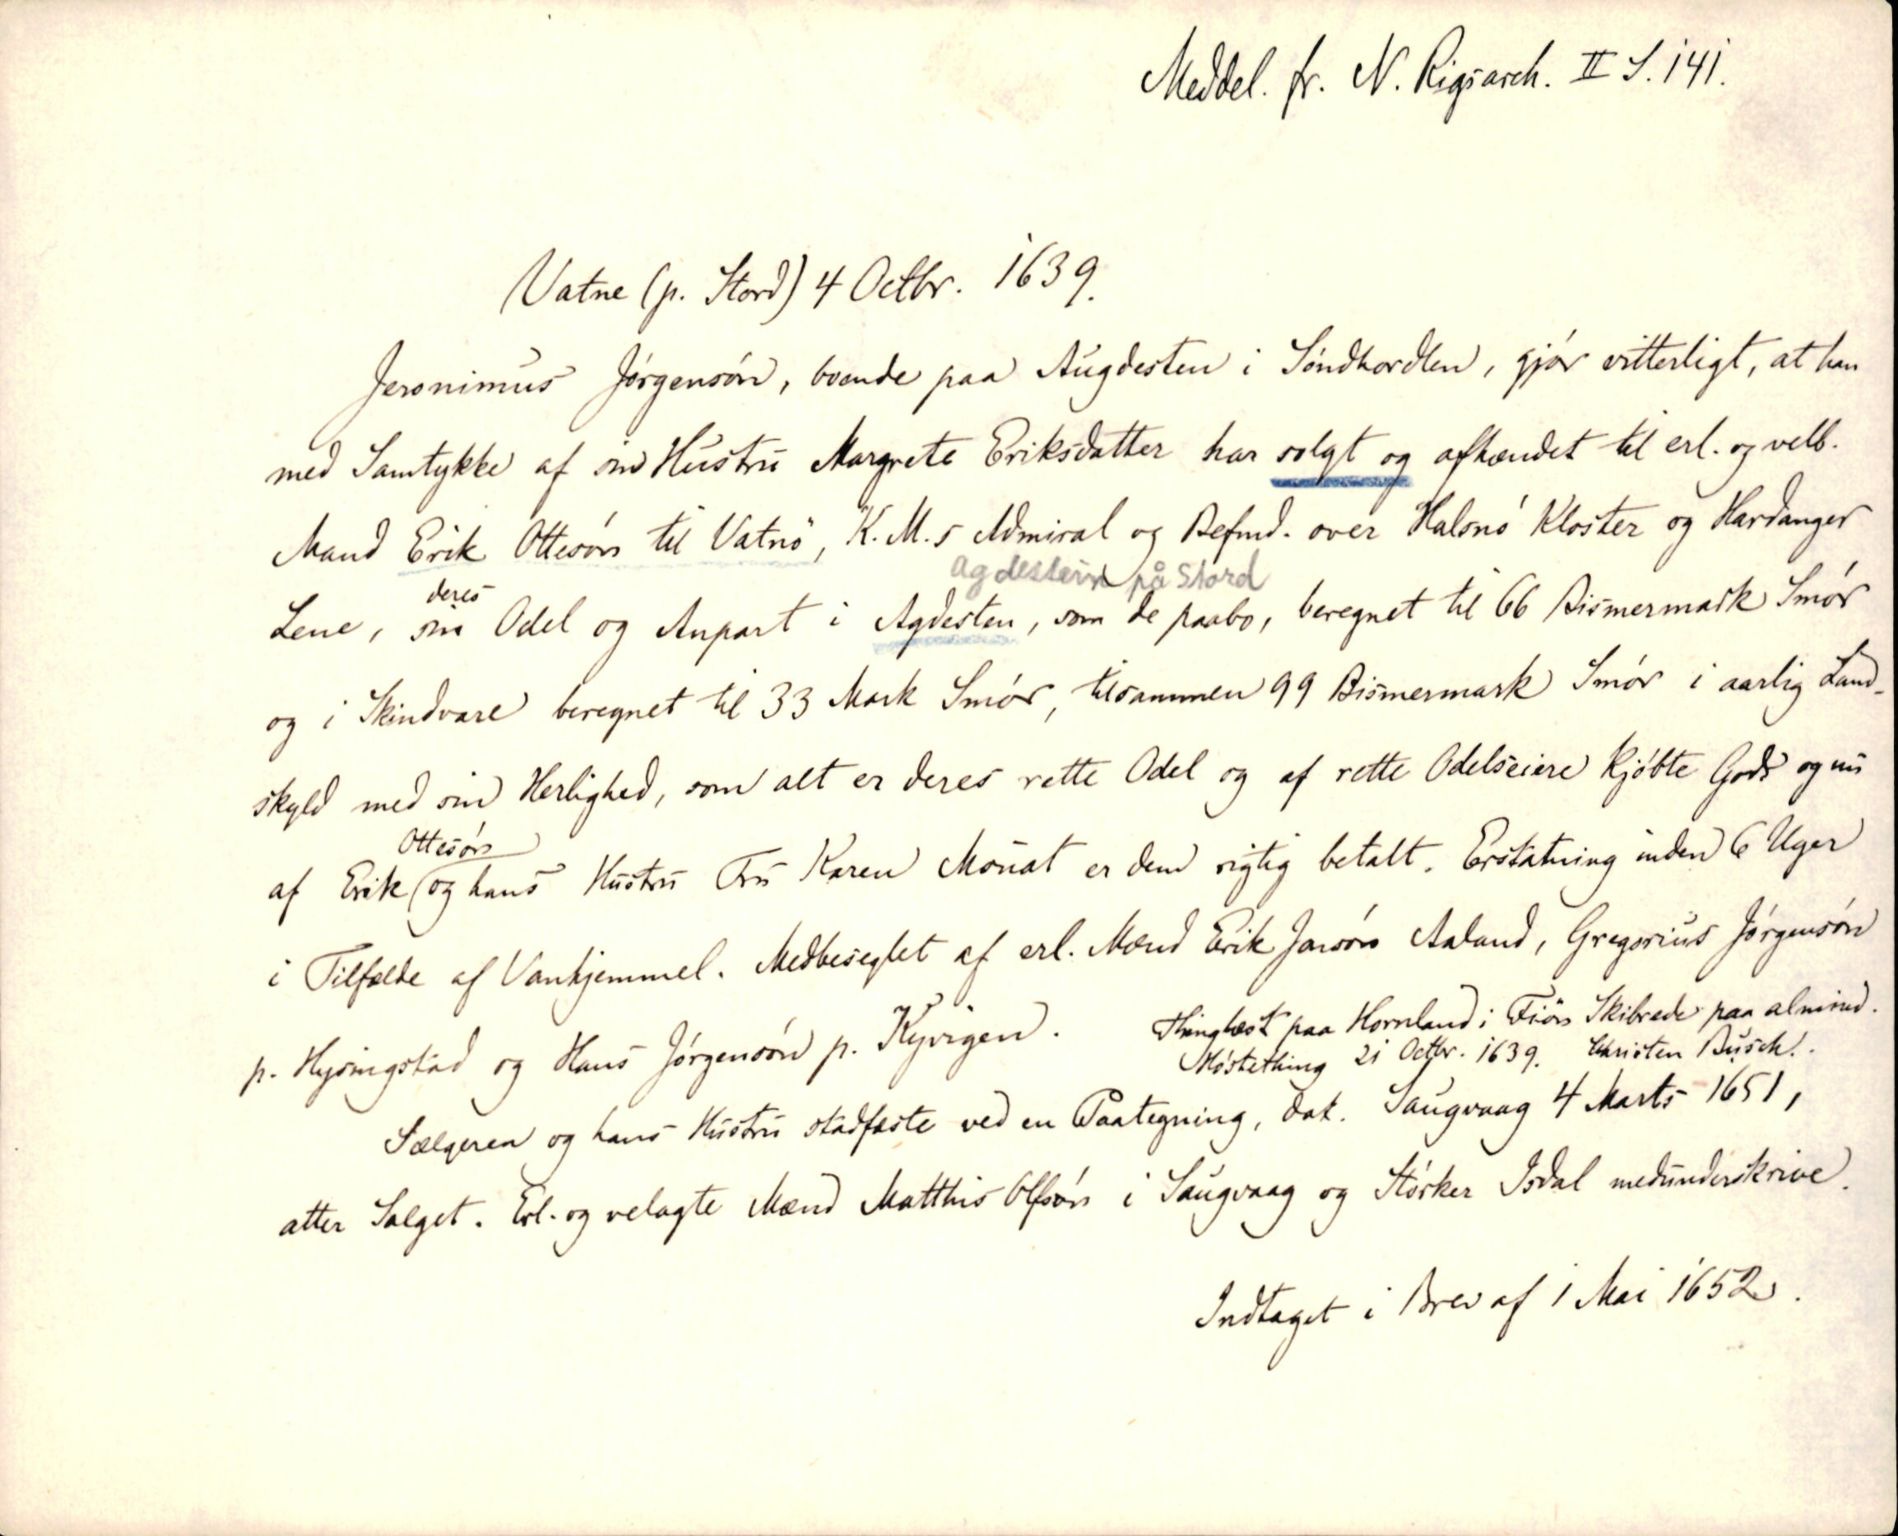 Meddel. fr. N. Rigsarch. II S. 141.
Vatne (p. Stord) 4 Octbr. 1639.
Jeronimus Jörgensön, boende paa Augdesten i Söndhordlen, gjör vitterligt, at han
med Samtykke af sin Hustru Margrete Eriksdatter har solgt og afhændet til erl. og velb.
Mand Erik Ottesön til Vatnö, K. M.s Admiral og Befmd. over Halsnö Kloster og Hardanger
Agdestein på Stord
deres
Lene, sin Odel og Anpart i Agdesten, som de paabo, beregnet til 66 Bismermark Smör
og i Skindvare beregnet til 33 Mark Smör, tilsammen 99 Bismermark Smör i aarlig Land-
skyld med sin Herlighed, som alt er deres rette Odel og af rette Odelseiere kjöbte Gods og nu
Ottesön
af Erik og hans Hustru Fru Karen Mouat er dem rigtig betalt. Erstatning inden 6 Uger
i Tilfælde af Vanhjemmel. Medbeseglet af erl. Mænd Erik Jansön Aaland, Gregorius Jörgensön
p. Hysingstad og Hans Jörgensön p. Kyvigen. Thinglæst paa Hornland i Fiöre Skibrede paa almind.
Höstething 21 Octbr. 1639. Christen Busch.
Sælgeren og hans Hustru stadfæste ved en Paategning, dat. Saugvaag 4 Marts 1651,
atter Salget. Erl. og velagte Mænd Matthis Olfsön i Saugvaag og Störker Isdal medunderskrive.
Indtaget i Brev af 1 Mai 1652.